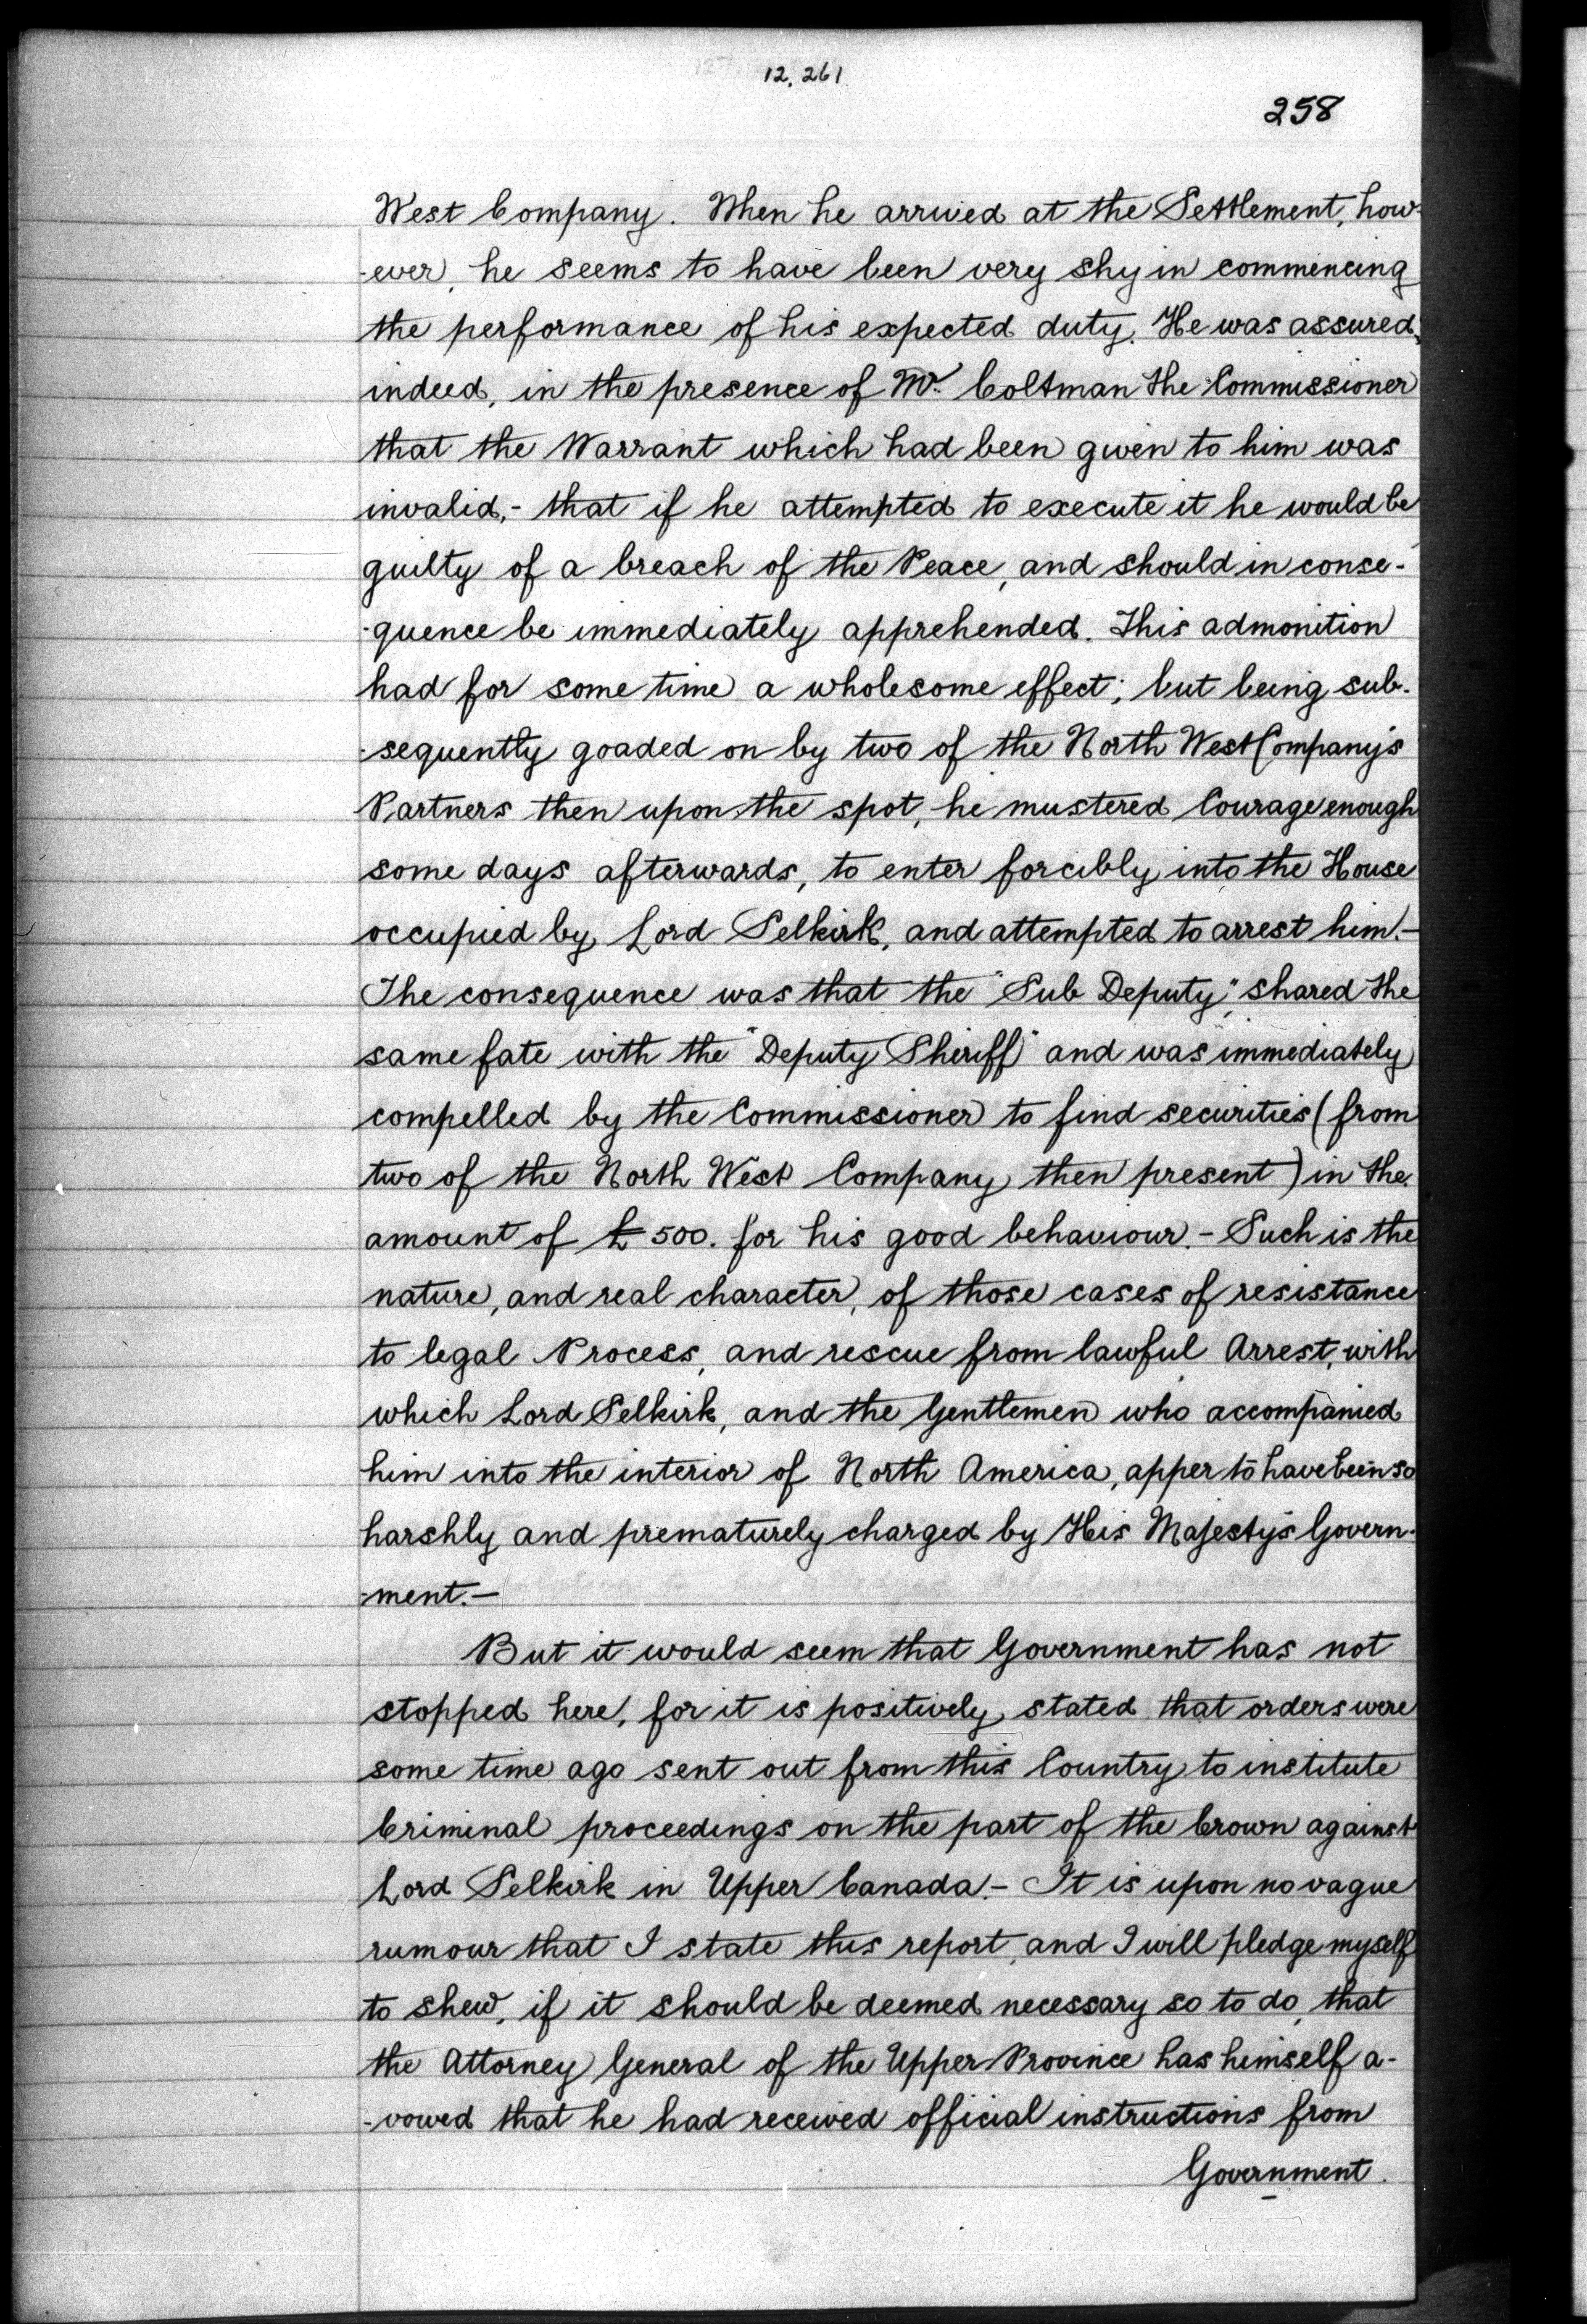 12,261
258
West Company. When he arrived at the Settlement, how-
-ever, he seems to have been very shy in commencing
the performance of his expected duty. He was assured,
indeed, in the presence of Mr. Coltman the Commissioner
that the Warrant which had been given to him was
invalid,- that if he attempted to execute it he would be
guilty of a breach of the Peace, and should in conse-
-quence be immediately apprehended. This admonition
had for some time a wholesome effect; but being sub-
-sequently goaded on by two of the North West Company's
Partners then upon the spot, he mustered Courage enough
some days afterwards, to enter forcibly into the House
occupied by Lord Selkirk, and attempted to arrest him.-
The consequence was that the "Sub Deputy", shared the
same fate with the "Deputy Sheriff" and was immediately
compelled by the Commissioner to find securities (from
two of the North West Company then present) in the
amount of £500. for his good behaviour.- Such is the
nature, and real character, of those cases of resistance
to legal Process, and rescue from lawful Arrest, with
which Lord Selkirk, and the Gentlemen who accompanied
him into the interior of North America, apper to have been so
harshly and prematurely charged by His Majesty's Govern-
-ment.-
But it would seem that Government has not
stopped here, for it is positively stated that orders were
some time ago sent out from this Country to institute
Criminal proceedings on the part of the Crown against
Lord Selkirk in Upper Canada.- It is upon no vague
rumour that I state this report, and I will pledge myself
to shew, if it should be deemed necessary so to do, that
the Attorney General of the Upper Province has himself a-
-vowed that he had received official instructions from
Government.